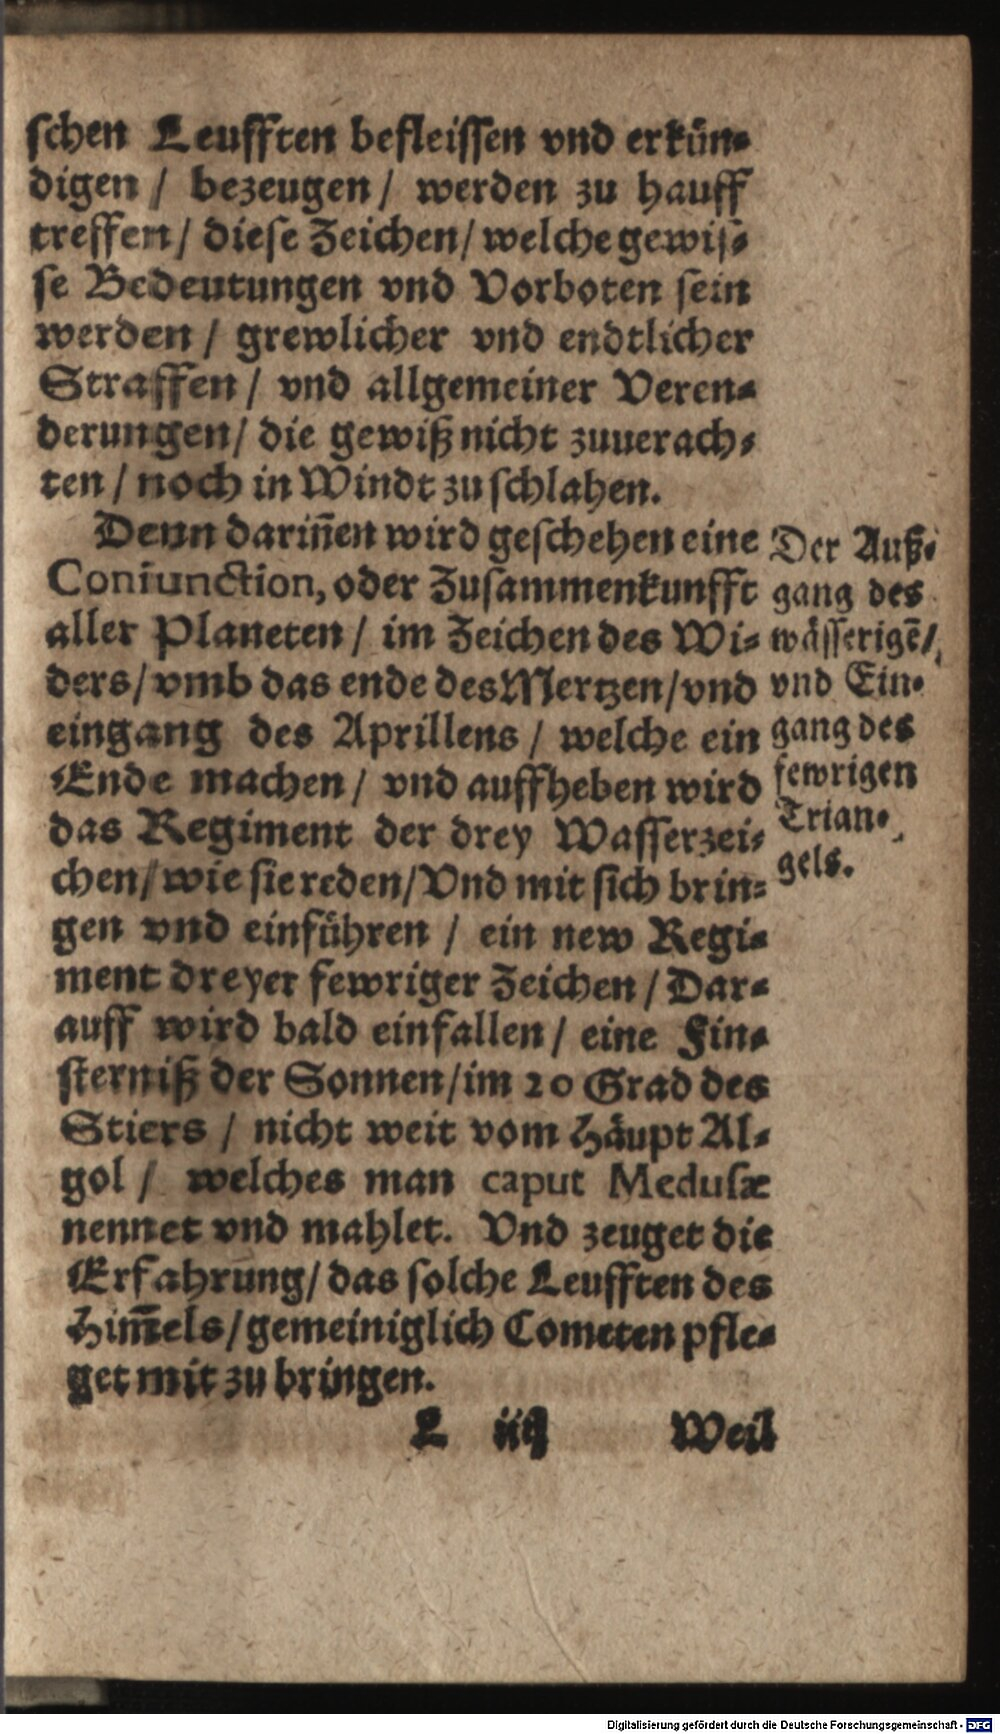 schen Leufften befleissen vnd erkün⸗
digen / bezeugen / werden zu hauff
treffen / diese Zeichen / welche gewis⸗
se Bedeutungen vnd Vorboten sein
werden / grewlicher vnd endtlicher
Straffen / vnd allgemeiner Veren⸗
derungen / die gewiß nicht zuuerach⸗
ten / noch in Windt zu schlahen.
Denn dariñen wird geschehen eine
Coniunction, oder Zusammenkunfft
aller Planeten / im Zeichen des Wi⸗
ders / vmb das ende des Mertzen / vnd
eingang des Aprillens / welche ein
Ende machen / vnd auffheben wird
das Regiment der drey Wasserzei⸗
chen / wie sie reden / Vnd mit sich brin⸗
gen vnd einführen / ein new Regi⸗
ment dreyer fewriger Zeichen / Dar⸗
auff wird bald einfallen / eine Fin⸗
sterniß der Sonnen / im 20 Grad des
Stiers / nicht weit vom Häupt Al⸗
gol / welches man caput Medusæ
nennet vnd mahlet. Vnd zeuget die
Erfahrung / das solche Leufften des
Him̄els / gemeiniglich Cometen pfle⸗
get mit zu bringen.
Der Auß⸗
gang des
wässerigē /
vnd Ein⸗
gang des
fewrigen
Trian⸗
gels.
L iij Weil
Digitalisierung gefördert durch die Deutsche Forschungsgemeinschaft - DFG